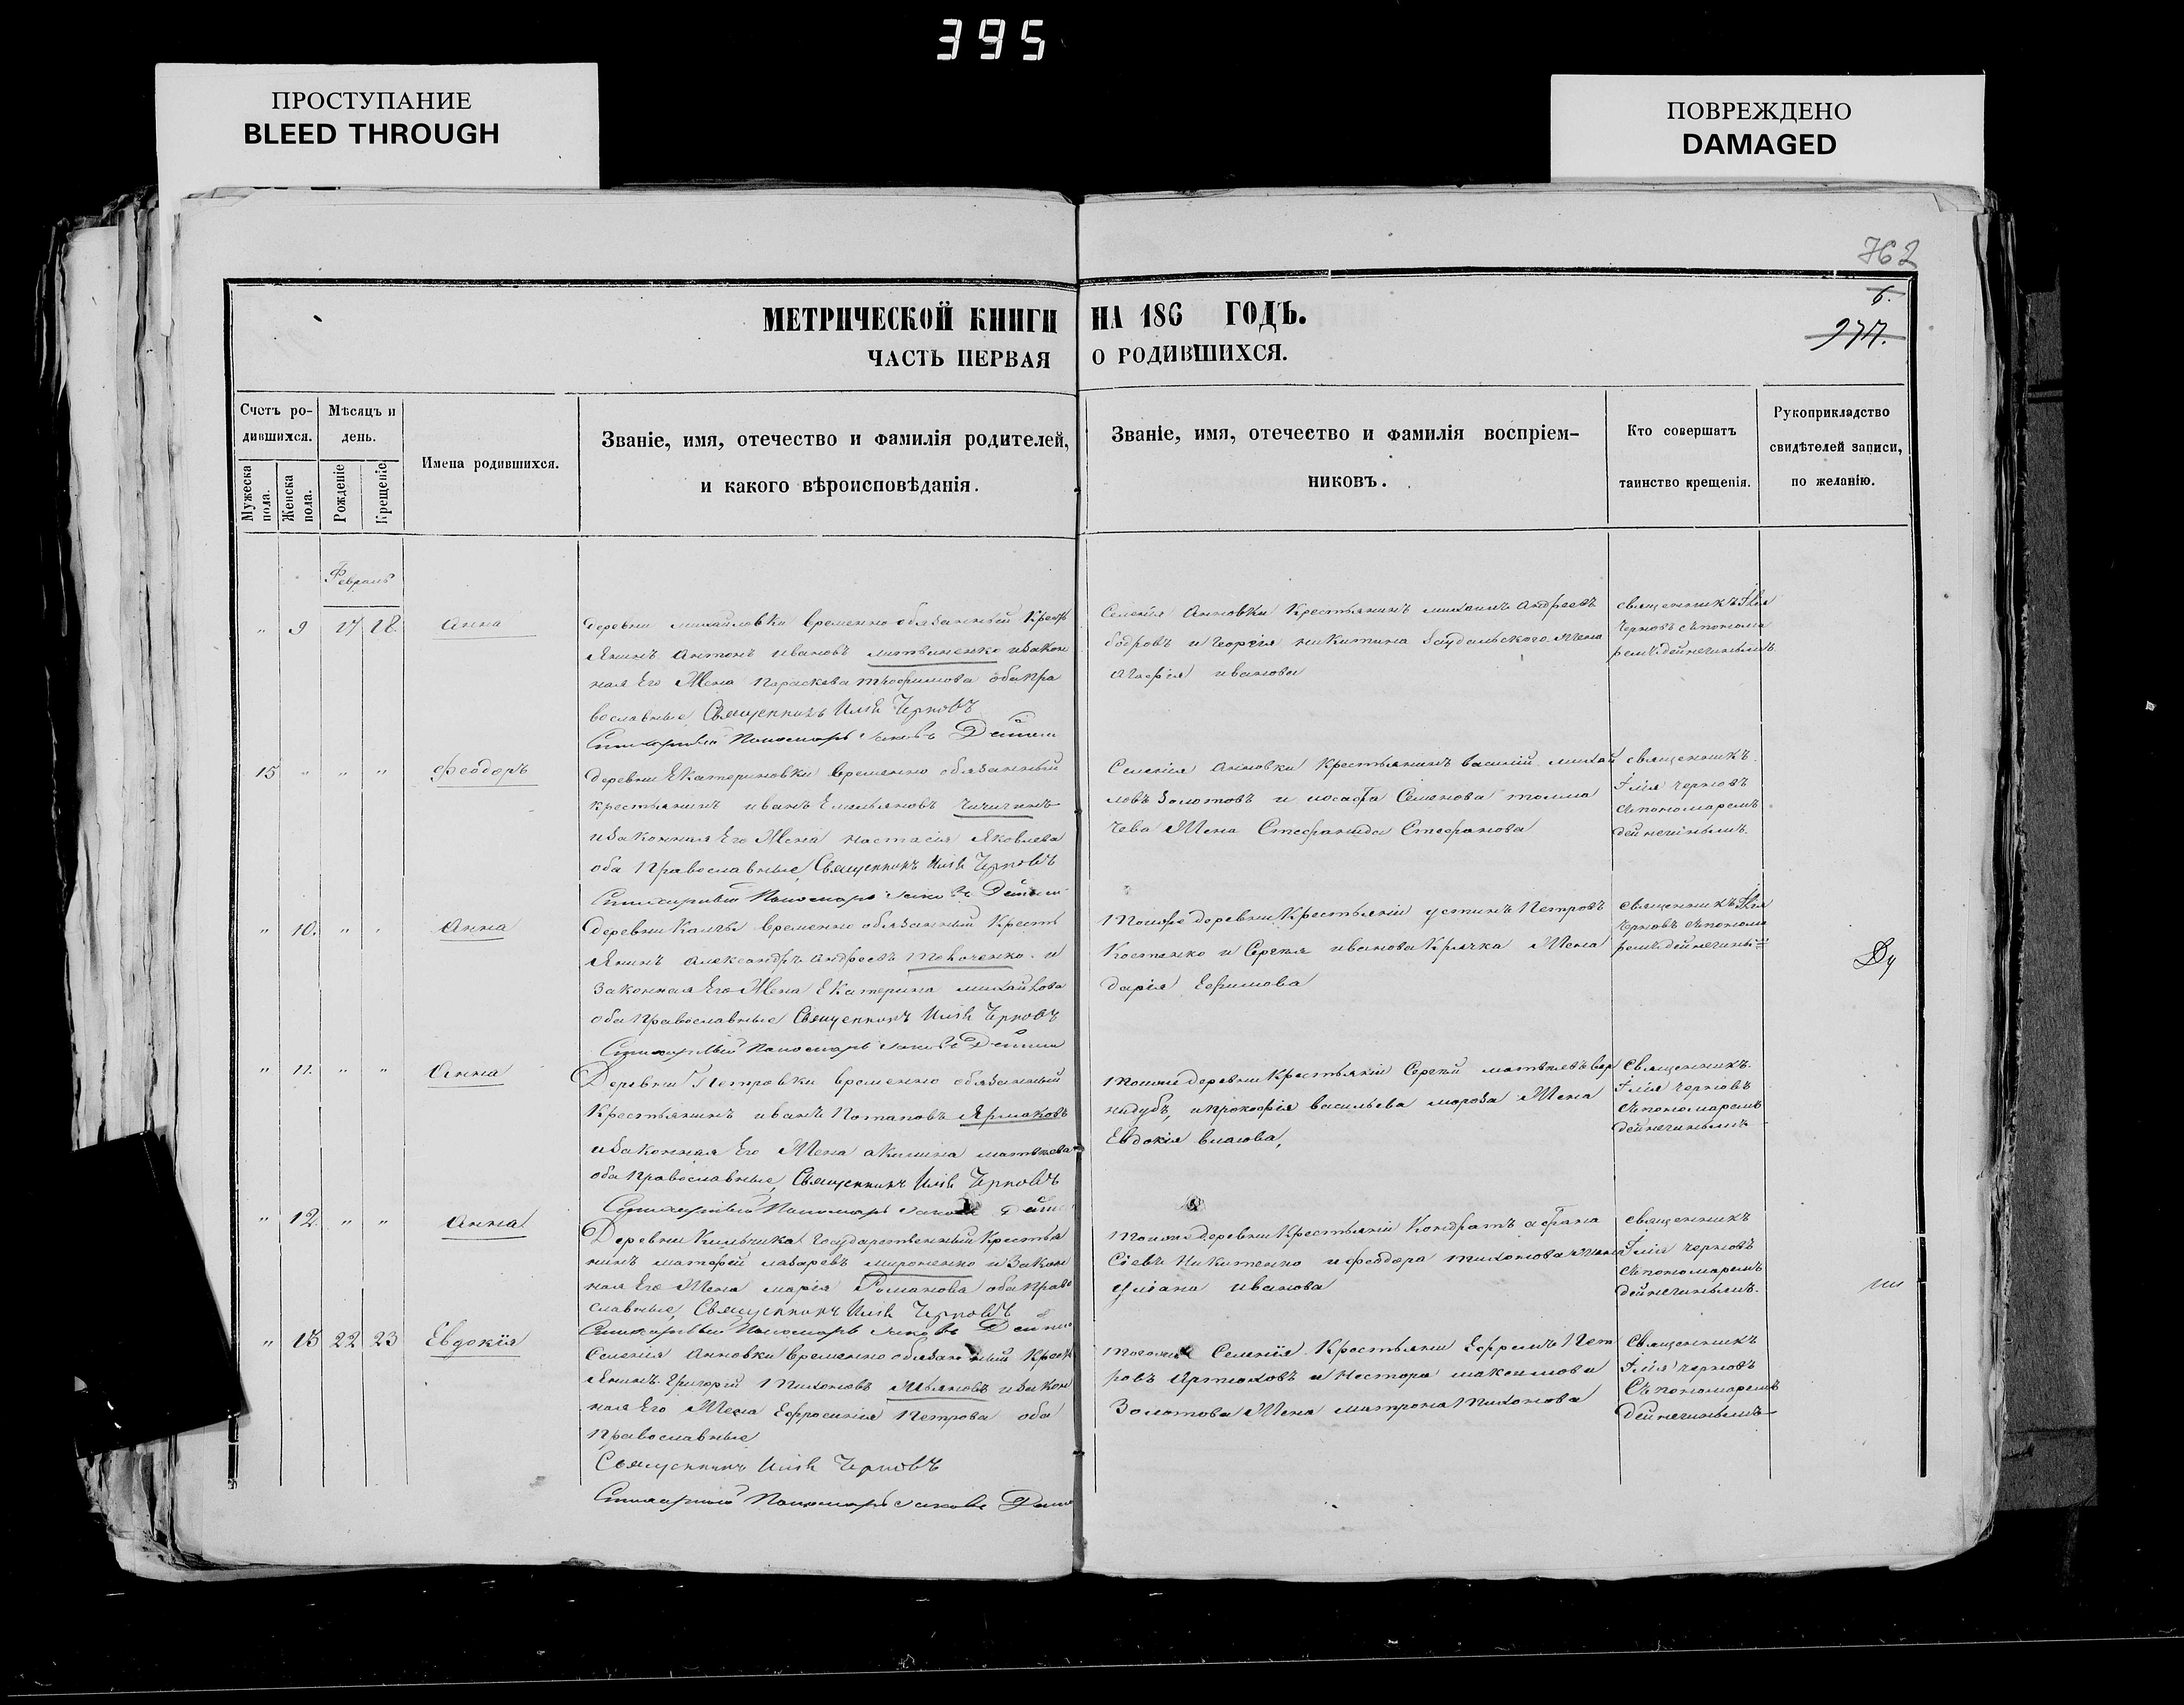 395
ПРОСТУПАНИЕ
BLEED THROUGH
ПОВРЕЖДЕНО
DAMAGED
762
6.
977.
МЕТРИЧЕСКОЙ КНИГИ НА 186 ГОДЪ.
ЧАСТЬ ПЕРВАЯ О РОДИВШИХСЯ.
Счетъ ро-
дившихся.
Мужеска пола.
Женска пола.
Мѣсяцъ и
день.
Рожденіе
Крещеніе
Имена родившихся.
Званіе, имя, отечество и фамилія родителей,
и какого вѣроисповѣданія.
Званіе, имя, отечество и фамилія воспріем-
никовъ.
Кто совершатъ
таинство крещенія.
Рукоприкладство
свидѣтелей записи,
по желанію.
Февраль
" 9 17 18 Анна
деревни михайловки временно обязанный Крест
янинъ Антонъ ивановъ литвиненко и закон
ная Его Жена Параскева трофимова оба пра
вославные, Священникъ Илія Черновъ
Стихарный Пономарь Іаковъ
Селенія Анновки Крестьянинъ михаилъ Андреевъ
бодровъ и Георгія никитина Жена
Агафія иванова
священникъ Илія
Черновъ съ понома
ремъ дейнегинымъ
15 " " " Феодоръ
деревни Екатериновки временно обязанный
крестьянинъ иванъ Емельяновъ чичигинъ
и законная Его Жена настасія Яковлева
оба Православные, Священникъ Илія Черновъ
Стихарный Пономарь Іаковъ
Селенія Анновки Крестьянинъ василій михай
ловъ Золотовъ и иосафа Семенова толма
чева Жена Стефанида Стефанова
священникъ
Илія черновъ
съ пономаремъ
дейнегинымъ.
" 10. " " Анна
деревни временно обязанный Кресть
янинъ Александръ Андреевъ Товченко и
законная Его Жена Екатерина михайлова
оба Православные Священникъ Илія Черновъ
Стихарный Пономарь Іаковъ
тойже деревни Крестьяніи устинъ Петровъ
Костенко и Сергея иванова Крячка Жена
дарія Ефимова
священникъ Илія
Черновъ съ понома
ремъ дейнегины=
" 11. " " Анна
Деревни Петровки временно обязанный
Крестьянинъ иванъ Потаповъ Ярмаковъ
и законная Его Жена акилина матвѣева
оба Православные, Священникъ Илія Черновъ
Стихарный Пономарь Іаковъ
тойже деревни Крестьяніи Сергѣй матвѣевъ вер
нидубъ, и Прокофія васильева мороза Жена
Евдокія власова,
священникъ.
Илія черновъ
съ пономаремъ
дейнегинымъ
" 12 " " Анна
Деревни Кильчика Государственный Крестья
нинъ матфей лазаревъ мироненко и Закон
ная Его Жена марія Романова оба Право
славные, Священникъ Илія Черновъ
Стихарный Пономарь Іаковъ
тойже деревни Крестьяніи Кондратъ афана
сіевъ Никитенко и феодора тихонова жена
уліана иванова
священникъ
Илія черновъ
съ пономаремъ
дейнегинымъ.
" 13 22 23 Евдокія
Селенія Анновки временно обязанный Крест
янинъ Григорій Тихоновъ и закон
ная Его Жена Ефросинія Петрова оба
Православные
Священникъ Илія Черновъ
Стихарный Пономарь Іаковъ
тогоже Селенія Крестьяни Ефремъ Пет
ровъ и Нестора максимова
Золотова Жена матрона Тихонова
Священникъ
Илія черновъ
съ пономаремъ
дейнегинымъ